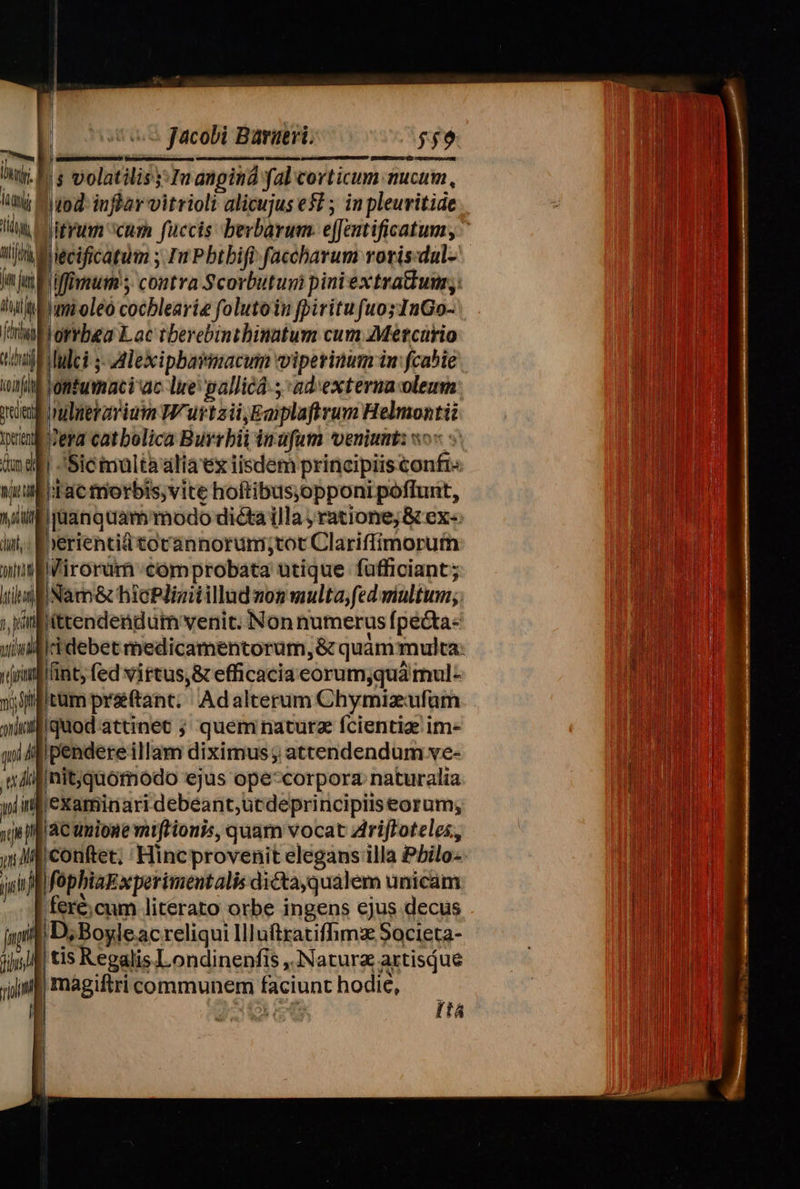 Jacobi Barneri. 559
s volatilis; In anginâ sal corticum nucum,
quod instar vitrioli alicujus est; in pleuritide
nitrum cum succis herbarum essentificatum,
specificatum; In Phthisi saccharum roris dul-
issimum; contra Scorbutum pini extractum,
cum oleo cochleariæ soluto in spiritu suo; In Go-
norrhœa Lac therebinthinatum cum Mercurio
dulci; Alexipharmacum viperinum in scabie
contumaci ac lue gallicâ; ad externa oleum
vulnerarium Wurtzii, Emplastrum Helmontii
vera catholica Burrhii in usum veniunt:
Sic multa alia ex iisdem principiis confi-
ac morbis, vitæ hostibus, opponi possunt,
quanquam modo dicta illa, ratione, & ex-
perientiâ tot annorum, tot Clarissimorum
Virorum comprobata utique sufficiant;
Nam & hic Plinii illud non multa, sed multum,
attendendum venit. Non numerus specta-
ri debet medicamentorum, & quàm multa
sint, sed virtus, & efficacia eorum, quâ mul-
tum præstant. Ad alterum Chymiæ usum
quod attinet; quem naturæ scientiæ im-
pendere illam diximus; attendendum ve-
nit, quomodo ejus ope corpora naturalia
examinari debeant, ut de principiis eorum,
ac unione mistionis, quam vocat Aristoteles,
constet. Hinc provenit elegans illa Philo-
sophia Experimentalis dicta, qualem unicam
ferè, cum literato orbe ingens ejus decus
D. Boyle ac reliqui Illustratissimæ Societa-
tis Regalis Londinensis, Naturæ artisque
magistri communem faciunt hodiè,
Ita